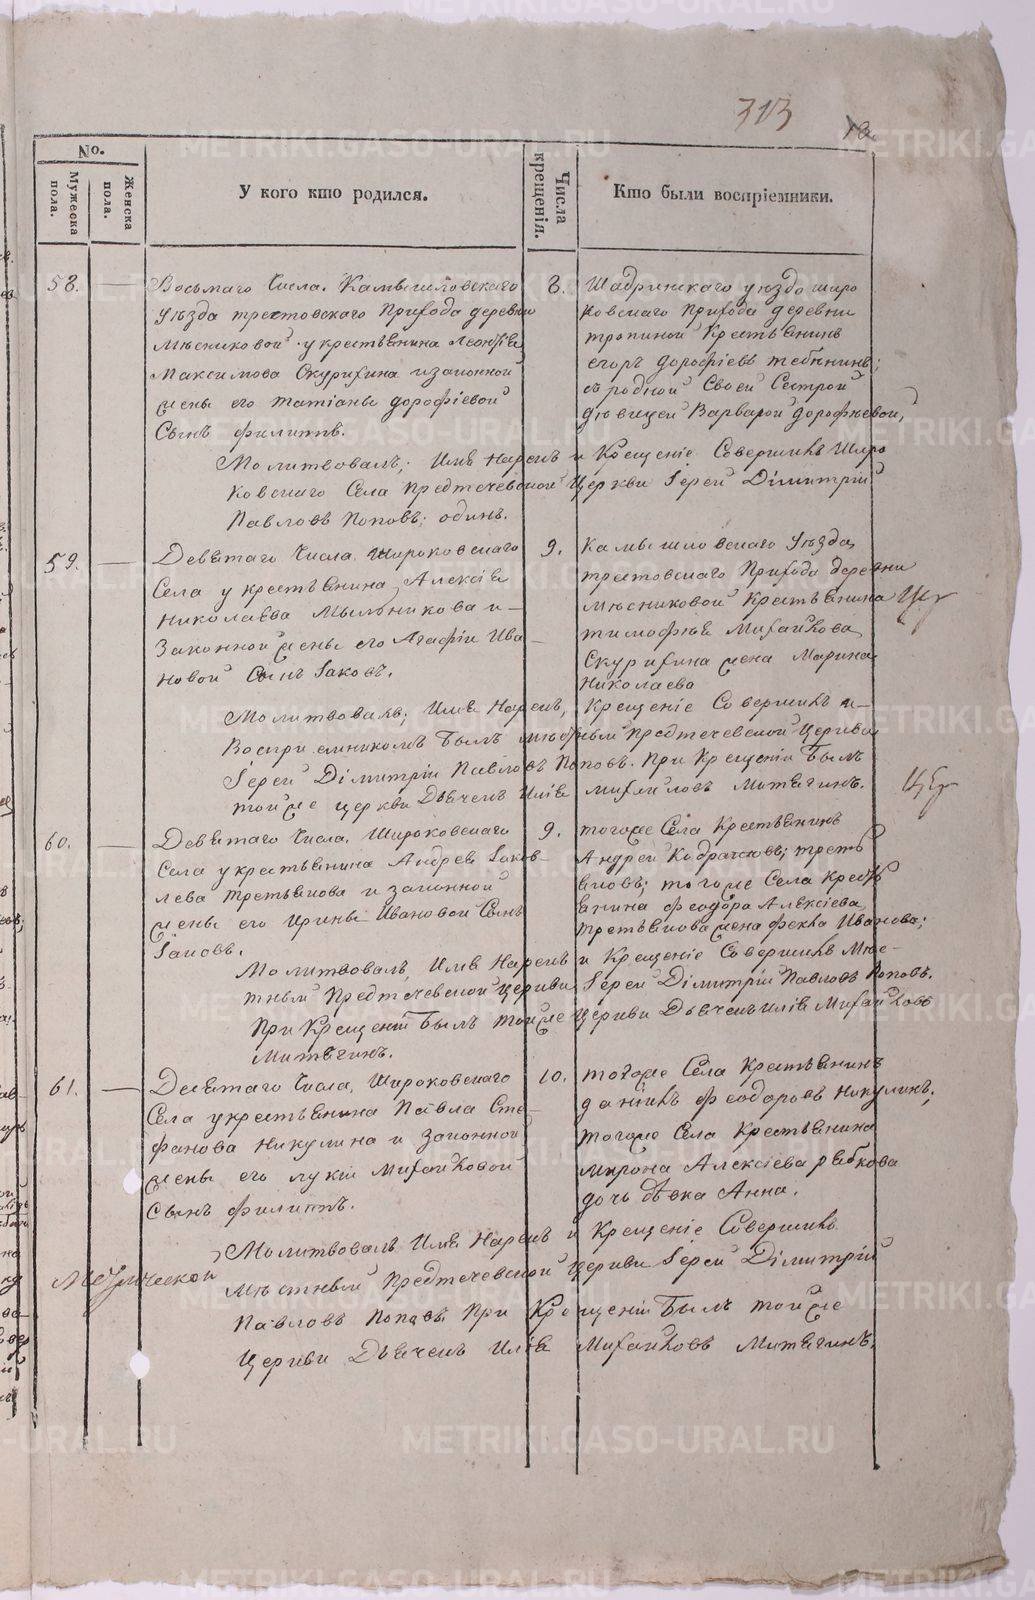 313
No.
Мужеска пола.
Женска пола.
У кого кто родился.
Числа крещенія.
Кто были воспріемники.
58. — Восьмаго Числа. Камышловскаго
уѣзда трестовскаго Прихода деревни
Мясниковой у крестьянина Леонтія
Максимова Скурихина и законной
жены его Татіаны дорофіевой
Сынъ филиппъ.
8. Шадринскаго уѣзда широ
ковскаго Прихода деревни
тропиной Крестьянинъ
егоръ дорофіевъ
съ родной Своей Сестрой
дѣвицей Варварой дорофѣевой,
Молитвовалъ; Имя Нарекъ и Крещеніе Совершилъ Широ
ковскаго Села предтечевской Церкви Іерей Димитрій
Павловъ Поповъ; одинъ.
59. — Девятаго Числа. Широковскаго
Села у крестьянина Алексія
Николаева Мыльникова и
Законной жены его Агафіи Ива
новой Сынъ Іаковъ.
9. Камышловскаго уѣзда,
трестовскаго Прихода деревни
мясниковой Крестьянина
тимофѣя Михайлова
Скурихина жена Марина
Николаева
Молитвовалъ; Имя Нарекъ, Крещеніе Совершилъ и
Воспріемникомъ былъ мѣстный предтечевской Церкви
Іерей Димитрій Павловъ Поповъ. При Крещеніи былъ
тойже церкви Дьячекъ Илія Михайловъ Митягинъ.
60. — Девятаго Числа, Широковскаго
Села у крестьянина Андрея Іаков
лева третьякова и законной
жены его Ирины Ивановой Сынъ
Іаковъ.
9. тогоже Села Крестьянинъ
Андрей Кодратовъ треть
яковъ; тогоже Села Кресть
янина феодора Алексіева
третьякова жена фекла Иванова;
Молитвовалъ, Имя Нарекъ и Крещеніе Совершилъ Мѣс
тный Предтечевской Церкви Іерей Димитрій Павловъ Поповъ.
При Крещеній былъ тойже Церкви Дьячекъ Илія Михайловъ
Митягинъ.
61. — Девятаго Числа, Широковскаго
Села у крестьянина Павла Сте
фанова Никулина и Законной
жены его лукіи Михайловой
Сынъ филиппъ.
10. тогоже Села Крестьянинъ
даніилъ феодоровъ Никулинъ;
тогоже Села Крестьянина
Мирона Алексіева рябкова
дочь дѣвка Анна.
Молитвовалъ Имя Нарекъ и Крещеніе Совершилъ
Метрической
Мѣстный предтечевской Церкви Іерей Димитрій
Павловъ Поповъ. При Крещеніи былъ тойже
Церкви Дьячекъ Илія Михайловъ Митягинъ.
METRIKI.GASO-URAL.RU